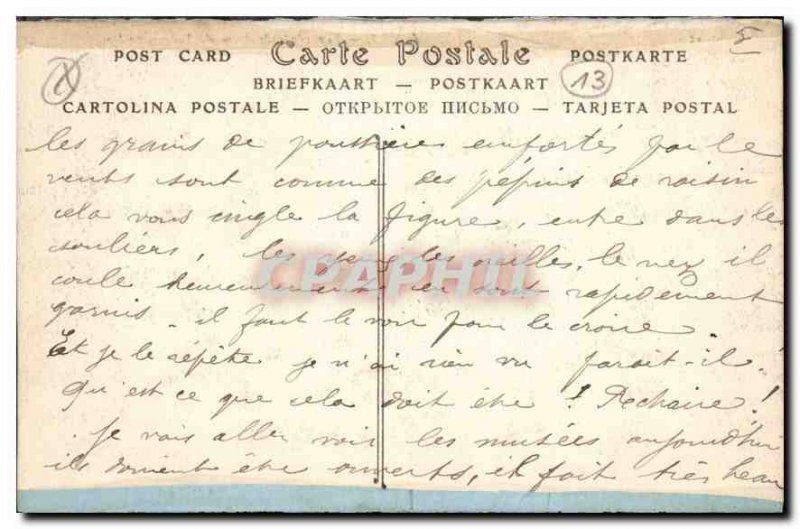 5
X
POST CARD Carte Postale POSTKARTE
BRIEFKAART — POSTKAART 13
CARTOLINA POSTALE — ОТКРЫТОЕ ПИСЬМО — TARJETA POSTAL
les grains de poussière emportés par le
vents sont comme des pépins de raisin
cela vous cingle la figure, entre dans les
souliers, les yeux, les oreilles, le nez il
coule heureusement, en sont rapidement
garnis. il faut le voir pour le croire.
Et je le répète je n'ai rien vu parait-il!
Qu'est ce que cela doit être! !
Je vais aller voir les musées aujourd'hui
ils doivent être ouverts, il fait très beau
CPAPHIL